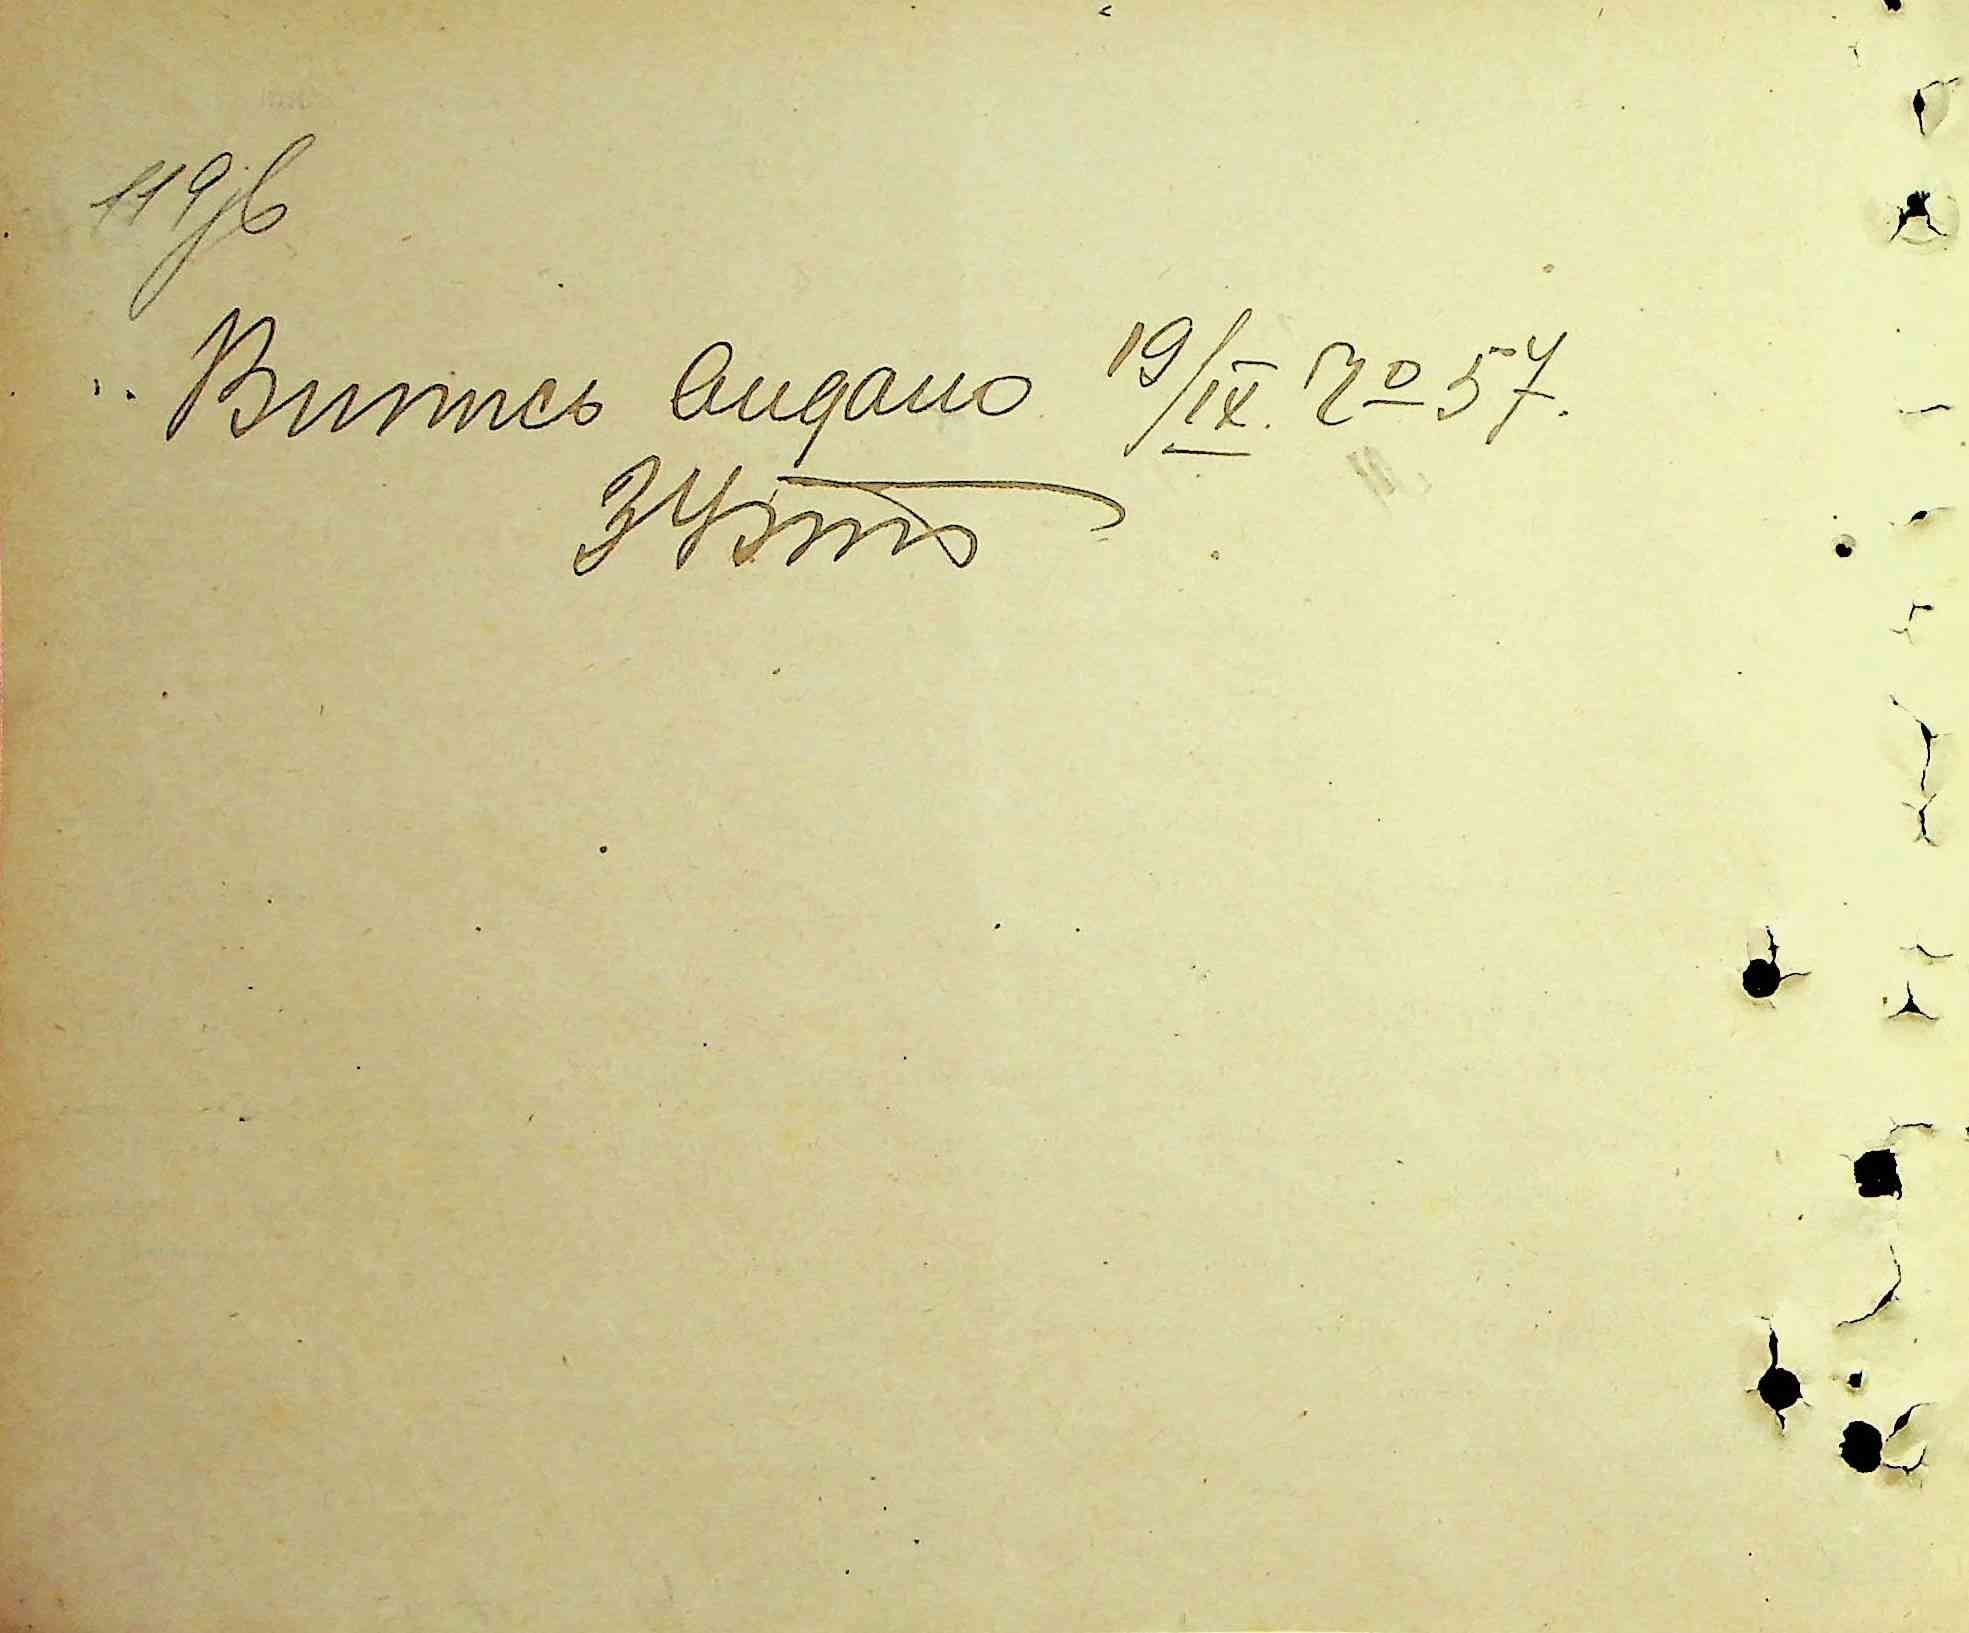 119
Випись видано 19/IX. № 57.